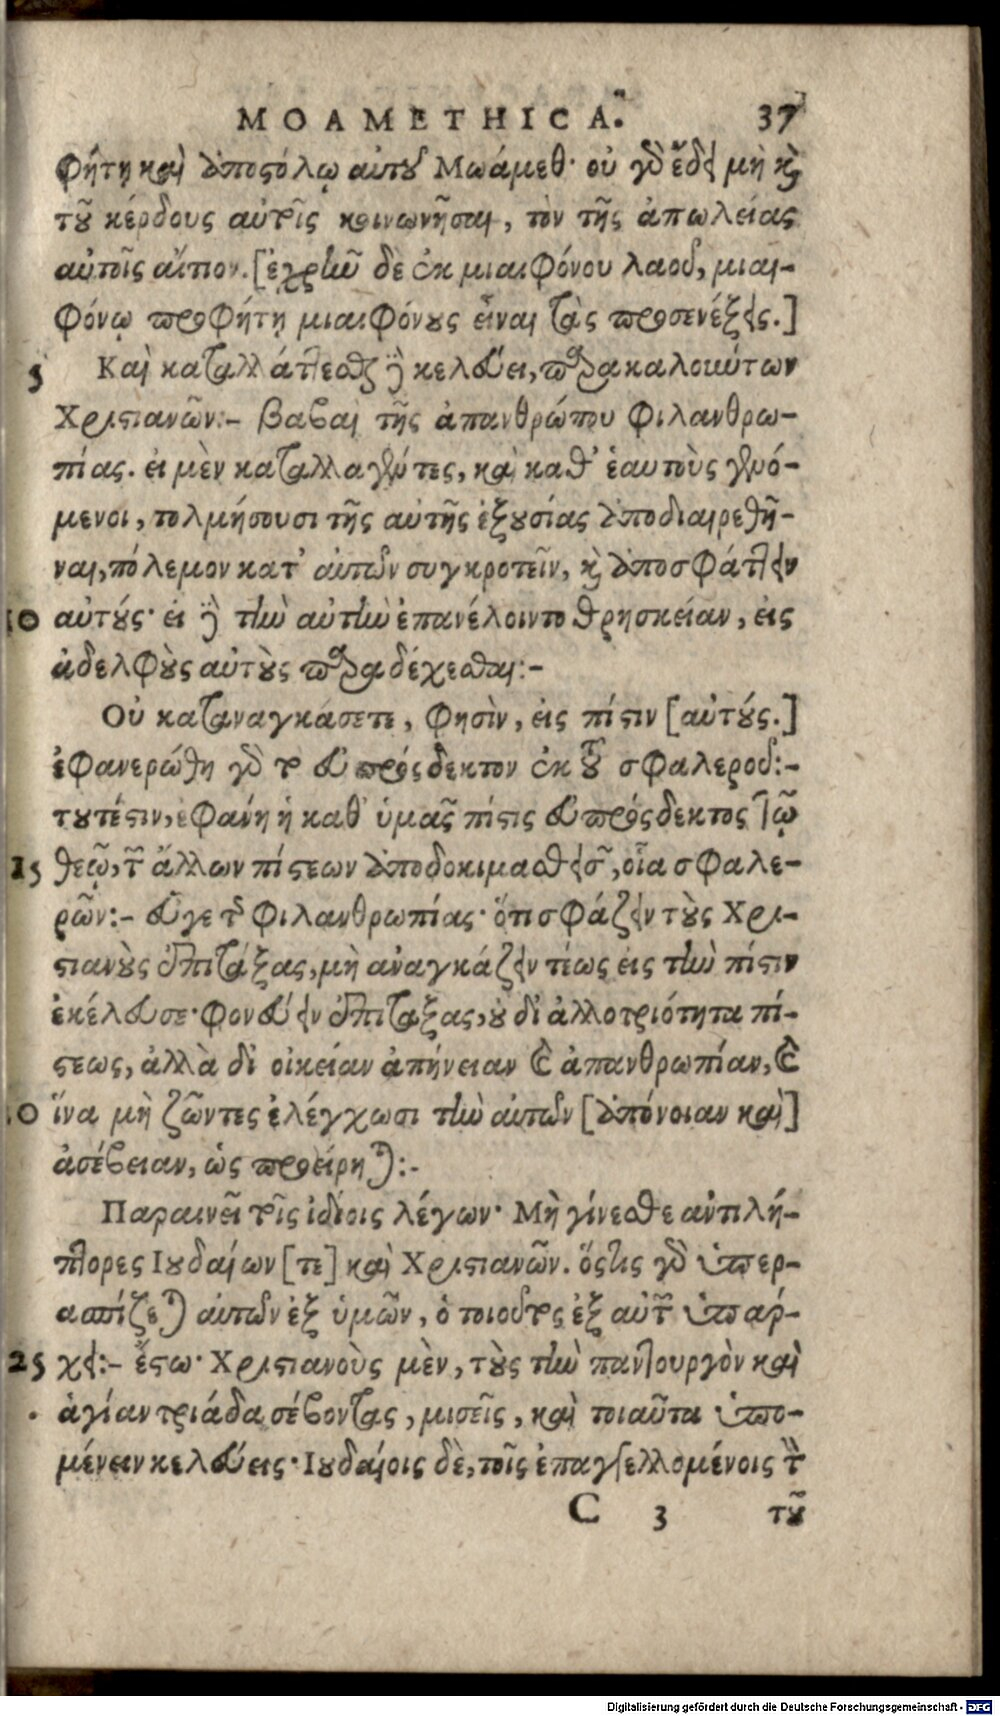 MOAMETHICA. 37
φήτῃ καὶ ἀποστόλῳ αὐτοῦ Μωάμεθ· οὐ γὰρ ἔδει μὴ καὶ
τοῦ κέρδους αὐτοῖς κοινωνῆσαι, τὸν τῆς ἀπωλείας
αὐτοῖς αἴτιον. [ἐχρῆν δὲ ἐκ μιαιφόνου λαοῦ, μιαι-
φόνῳ προφήτῃ μιαιφόνους εἶναι τὰς προσενέξεις.]
5 Καὶ καταλλάττεσθαι δὲ κελεύει, παρακαλούντων
Χριστιανῶν:- βαβαὶ τῆς ἀπανθρώπου φιλανθρω-
πίας. εἰ μὲν καταλλαγέντες, καὶ καθ' ἑαυτοὺς γενό-
μενοι, τολμήσουσι τῆς αὐτῆς ἐξουσίας ἀποδιαιρεθῆ-
ναι, πόλεμον κατ' αὐτῶν συγκροτεῖν, καὶ ἀποσφάττειν
10 αὐτούς· εἰ δὲ τὴν αὐτὴν ἐπανέλοιντο θρησκείαν, εἰς
ἀδελφοὺς αὐτοὺς παραδέχεσθαι:-
Οὐ καταναγκάσετε, φησὶν, εἰς πίστιν [αὐτούς.]
ἐφανερώθη γὰρ τὸ εὐπρόςδεκτον ἐκ τοῦ σφαλεροῦ:-
τουτέστιν, ἐφάνη ἡ καθ' ὑμᾶς πίστις εὐπρόςδεκτος τῷ
15 θεῷ, τῶν ἄλλων πίστεων ἀποδοκιμασθεισῶν, οἷα σφαλε-
ρῶν:- εὖγε τῆς φιλανθρωπίας· ὅτι σφάζειν τοὺς Χρι-
στιανοὺς ἐπιτάξας, μὴ ἀναγκάζειν τέως εἰς τὴν πίστιν
ἐκέλευσε· φονεύειν ἐπιτάξας, οὐ δι' ἀλλοτριότητα πί-
στεως, ἀλλὰ δι' οἰκείαν ἀπήνειαν καὶ ἀπανθρωπίαν, καὶ
20 ἵνα μὴ ζῶντες ἐλέγχωσι τὴν αὐτῶν [ἀπόνοιαν καὶ]
ἀσέβειαν, ὡς προείρηται:-
Παραινεῖ τοῖς ἰδίοις λέγων· Μὴ γίνεσθε ἀντιλή-
πτορες Ἰουδαίων [τε] καὶ Χριστιανῶν. ὅςτις γὰρ ὑπερ-
ασπίζεται αὐτῶν ἐξ ὑμῶν, ὁ τοιοῦτος ἐξ αὐτῶν ὑπάρ-
25 χει:- ἔστω· Χριστιανοὺς μὲν, τοὺς τὴν παντουργὸν καὶ
ἁγίαν τριάδα σέβοντας, μισεῖς, καὶ τοιαῦτα ὑπο-
μένειν κελεύεις· Ἰουδαίοις δὲ, τοῖς ἐπαγγελλομένοις τὰ
C 3 τοῦ
Digitalisierung gefördert durch die Deutsche Forschungsgemeinschaft - DFG